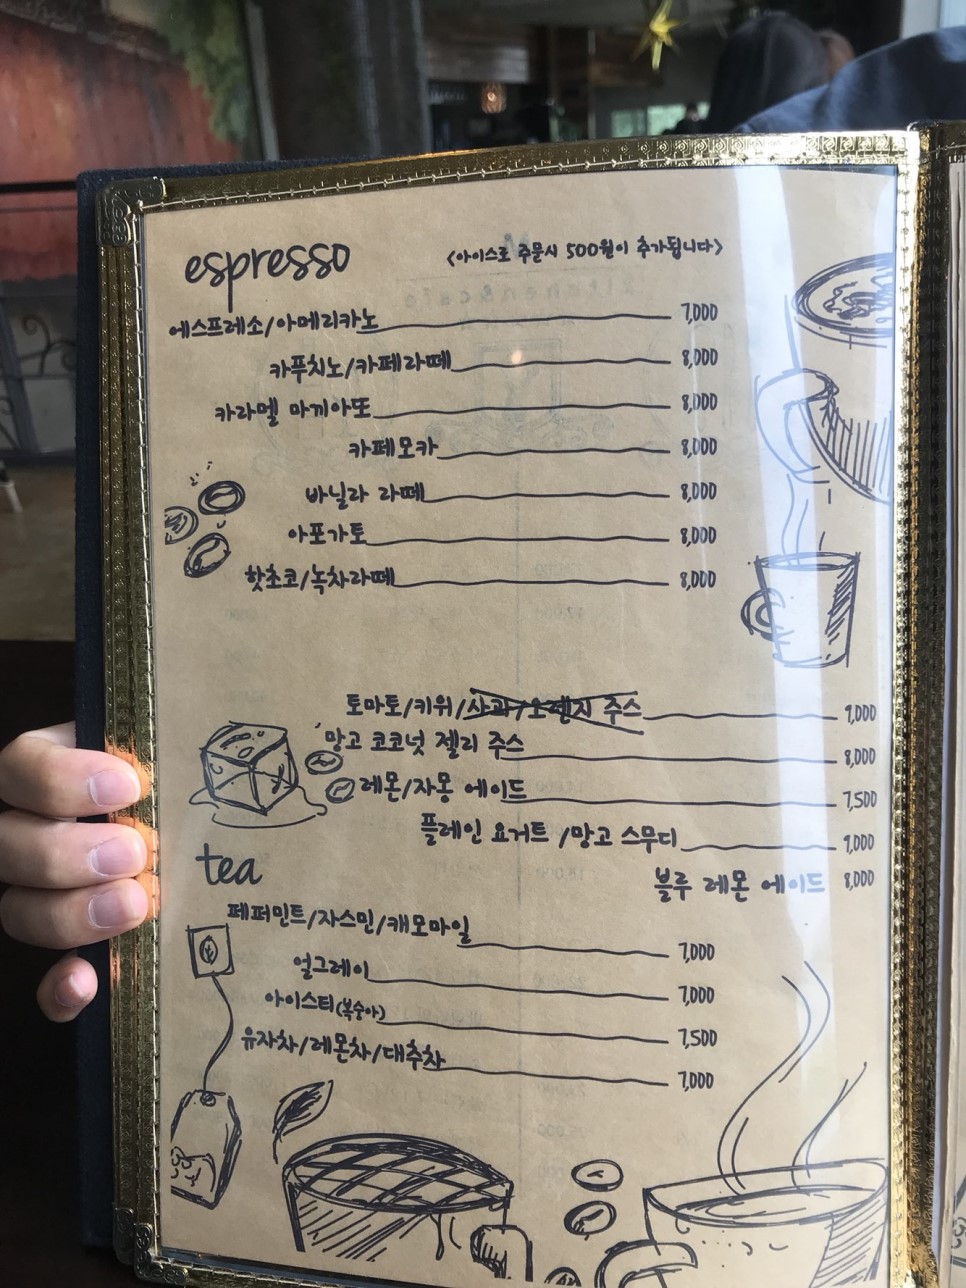 espresso
<아이스로 주문시 500원이 추가됩니다>
에스프레소/아메리카노 7,000
카푸치노/카페라떼 8,000
카라멜 마끼아또 8,000
카페모카 8,000
바닐라 라떼 8,000
아포가토 8,000
핫초코/녹차라떼 8,000
토마토/키위/사과/오렌지 주스 9,000
망고 코코넛 젤리 주스 8,000
레몬/자몽 에이드 7,500
플레인 요거트 /망고 스무디 9,000
블루 레몬 에이드 8,000
tea
페퍼민트/자스민/캐모마일 7,000
얼그레이 7,000
아이스티(복숭아) 7,500
유자차/레몬차/대추차 7,000